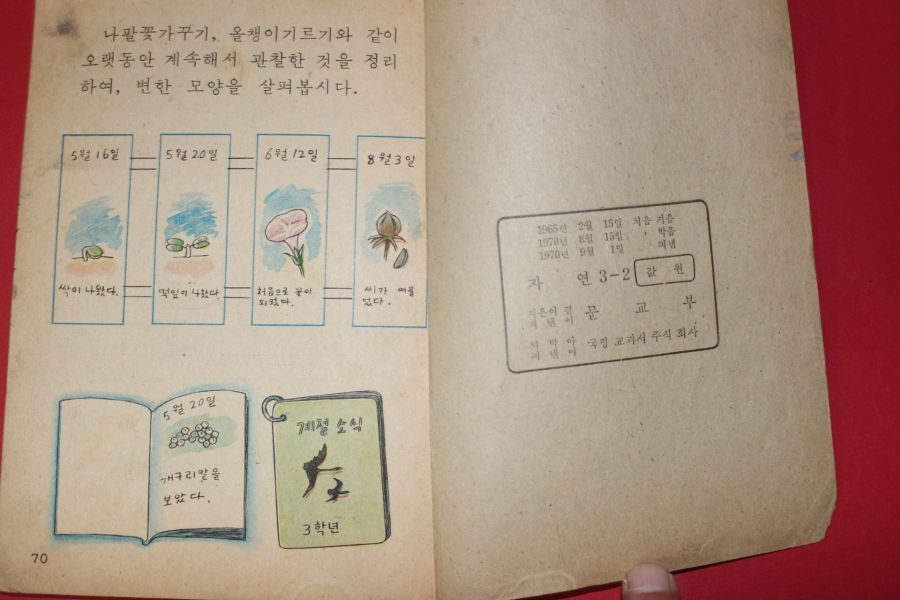 나팔꽃가꾸기, 올챙이기르기와 같이
오랫동안 계속해서 관찰한 것을 정리
하여, 변한 모양을 살펴봅시다.
5월 16일
싹이 나왔다.
5월 20일
떡잎이 나왔다.
6월 12일
처음으로 꽃이
피었다.
8월 3일
씨가 여물
었다.
5월 20일
개구리알을
보았다.
계절 소식
3학년
70
1965년 2월 15일 처음 지음
1970년 8월 15일 〃 박음
1970년 9월 1일 펴냄
자 연 3-2
값 원
지은이 겸
펴낸이
문 교 부
박아
펴낸이
국정 교과서 주식 회사